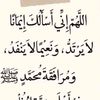 اللَّهُمَّ إِنِّي أَسْأَلُكَ إِيمَانًا
لاَ يَرْتَدُّ، وَنَعِيمًا لاَ يَنْفَدُ،
وَمُرَافَقَةَ مُحَمَّدٍ ﷺ